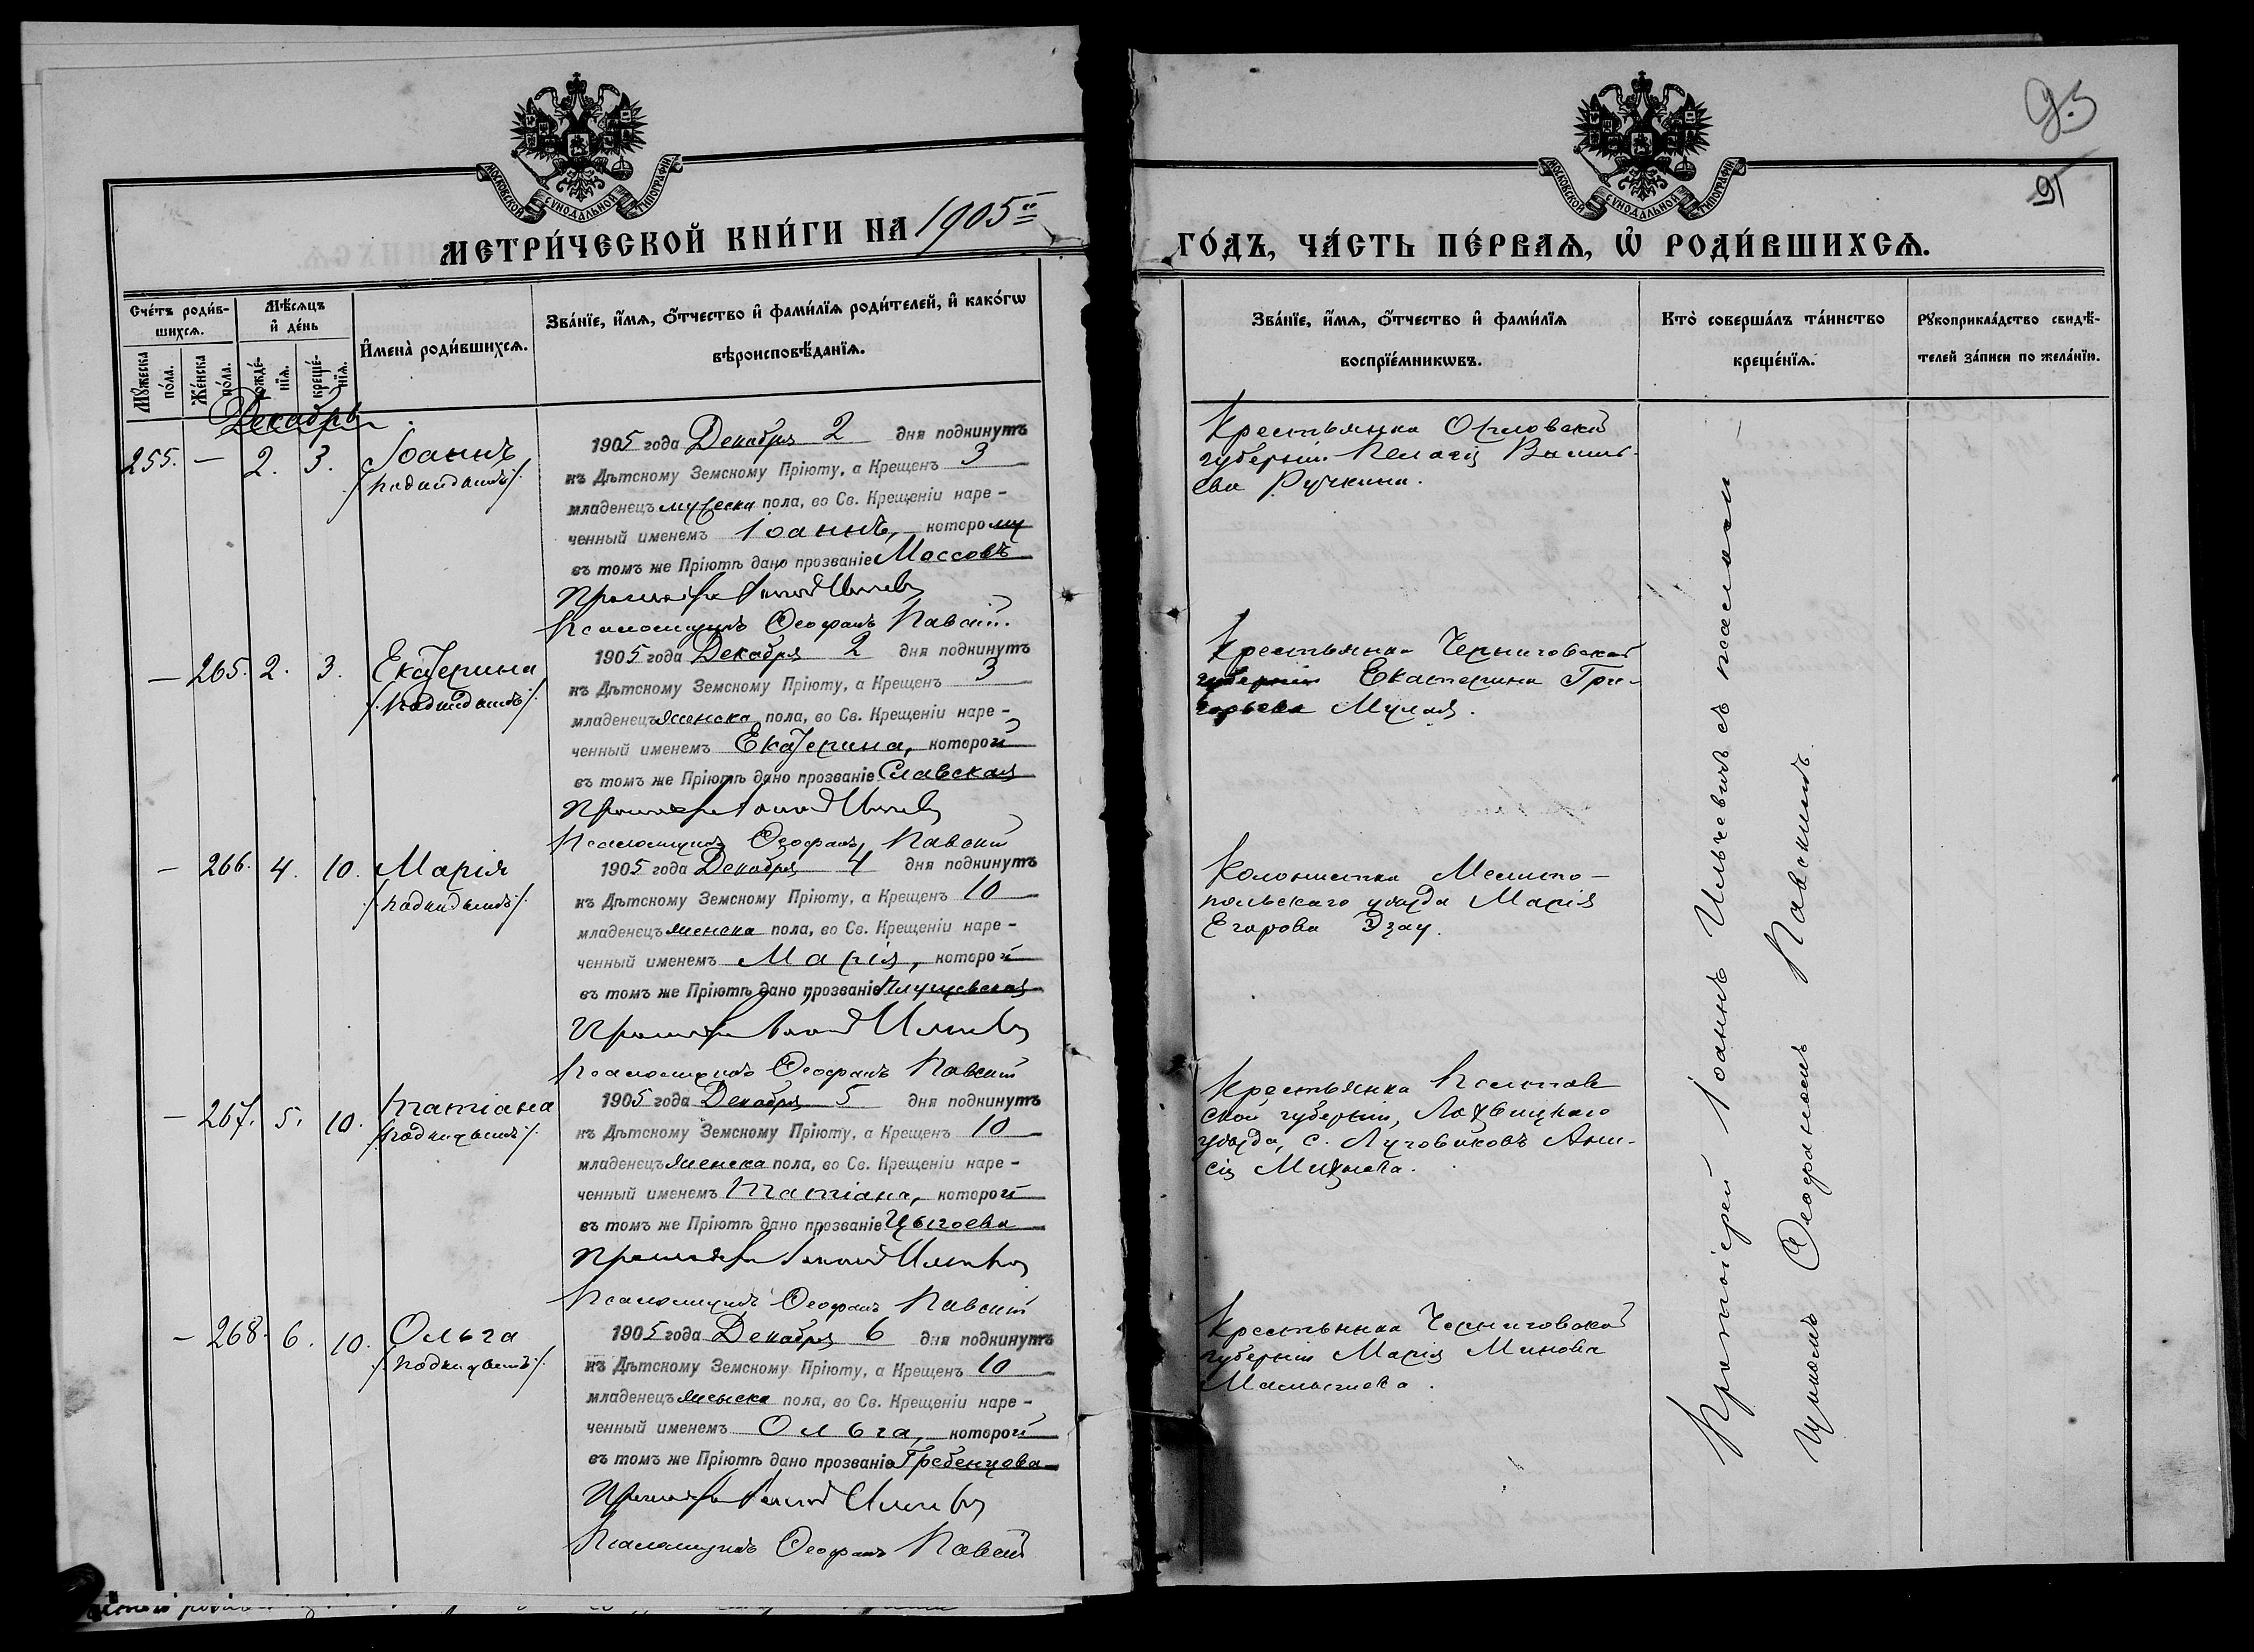 93
91
МОСКОВСКОЙ СѴНОДАЛЬНОЙ ТИПОГРАФІИ
МОСКОВСКОЙ СѴНОДАЛЬНОЙ ТИПОГРАФІИ
МЕТРИ́ЧЕСКОЙ КНИ́ГИ НА 1905й
ГО́ДЪ, ЧА́СТЬ ПЕ́РВАѦ, Ѡ҆ РОДИ́ВШИХСѦ.
Сче́тъ роди́в-
шихсѧ.
Мѣ́сѧцъ
и҆ де́нь
Мꙋ́жеска
по́ла.
Же́нска
по́ла.
рожде́-
нїѧ.
креще́-
нїѧ.
И҆мена̀ роди́вшихсѧ.
Зва́нїе, и҆́мѧ, ѻ҆́тчество и҆ фами́лїѧ роди́телей, и҆ како́гѡ
вѣроисповѣ́данїѧ.
Зва́нїе, и҆́мѧ, ѻ҆́тчество и҆ фами́лїѧ
воспрїе́мникѡвъ.
Кто̀ соверша́лъ та́инство
креще́нїѧ.
Рꙋкоприкла́дство свидѣ́-
телей за́писи по жела́нїю.
Декабрь
255. — 2. 3. Іоаннъ
/подкидышъ/.
1905 года Декабря 2 дня подкинутъ
къ Дѣтскому Земскому Пріюту, а Крещенъ 3
младенецъ мужеска пола, во Св. Крещеніи наре-
ченный именемъ Іоаннъ, которому
въ томъ же Пріютѣ дано прозваніе Массовъ
Протоіерей Іоаннъ Ильчевъ
Псаломщикъ Ѳеофанъ Павскій.
Крестьянка Орловской
губерніи Пелагія Василь-
ева Ручкина.
— 265. 2. 3. Екатерина
/.подкидышъ/.
1905 года Декабря 2 дня подкинутъ
къ Дѣтскому Земскому Пріюту, а Крещенъ 3
младенецъ женска пола, во Св. Крещеніи наре-
ченный именемъ Екатерина, которой
въ томъ же Пріютѣ дано прозваніе Славская
Протоіерей Іоаннъ
Псаломщикъ Ѳеофанъ Павскій
Крестьянка Черниговской
губерніи Екатерина Гри-
горьева
— 266. 4. 10. Марія
/.подкидышъ/.
1905 года Декабря 4 дня подкинутъ
къ Дѣтскому Земскому Пріюту, а Крещенъ 10
младенецъ женска пола, во Св. Крещеніи наре-
ченный именемъ Марія, которой
въ томъ же Пріютѣ дано прозваніе
Протоіерей Іоаннъ
Псаломщикъ Ѳеофанъ Павскій
Колонистка Мелито-
польскаго уѣзда Марія
Егорова Дзау.
— 267. 5. 10. Татіана
/.подкидышъ/.
1905 года Декабря 5 дня подкинутъ
къ Дѣтскому Земскому Пріюту, а Крещенъ 10
младенецъ женска пола, во Св. Крещеніи наре-
ченный именемъ Татіана, которой
въ томъ же Пріютѣ дано прозваніе Цыгоева
Протоіерей Іоаннъ
Псаломщикъ Ѳеофанъ Павскій
Крестьянка Полтав
ской губерніи, Лохвицкаго
уѣзда, с. Луговиковъ Ани-
сія
— 268. 6. 10. Ольга
/.подкидышъ/.
1905 года Декабря 6 дня подкинутъ
къ Дѣтскому Земскому Пріюту, а Крещенъ 10
младенецъ женска пола, во Св. Крещеніи наре-
ченный именемъ Ольга, которой
въ томъ же Пріютѣ дано прозваніе Гребенцова
Протоіерей Іоаннъ
Псаломщикъ Ѳеофанъ Павскій
Крестьянка Черниговской
губерніи Марія Минова
Протоіерей Іоаннъ Ильчевичъ съ псалом
щикомъ Ѳеофаномъ Павскимъ.